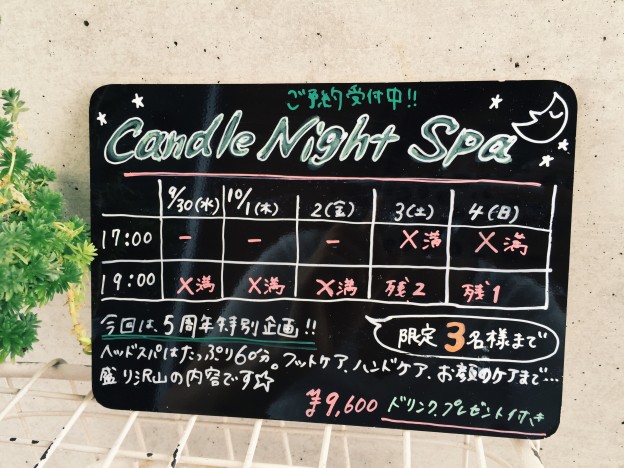 ご予約受付中!!
Candle Night Spa
9/30(水) 10/1(木) 2(金) 3(土) 4(日)
17:00 - - - ×満 ×満
19:00 ×満 ×満 ×満 残2 残1
今回は、5周年特別企画!!
限定3名様まで
ヘッドスパはたっぷり60分。フットケア、ハンドケア、お顔のケアまで…
盛り沢山の内容です☆
¥9,600 ドリンクプレゼント付き